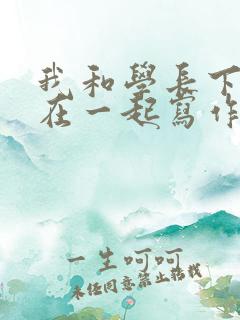 我和學長下
在一起寫作
一生呵呵
未經同意禁止轉載